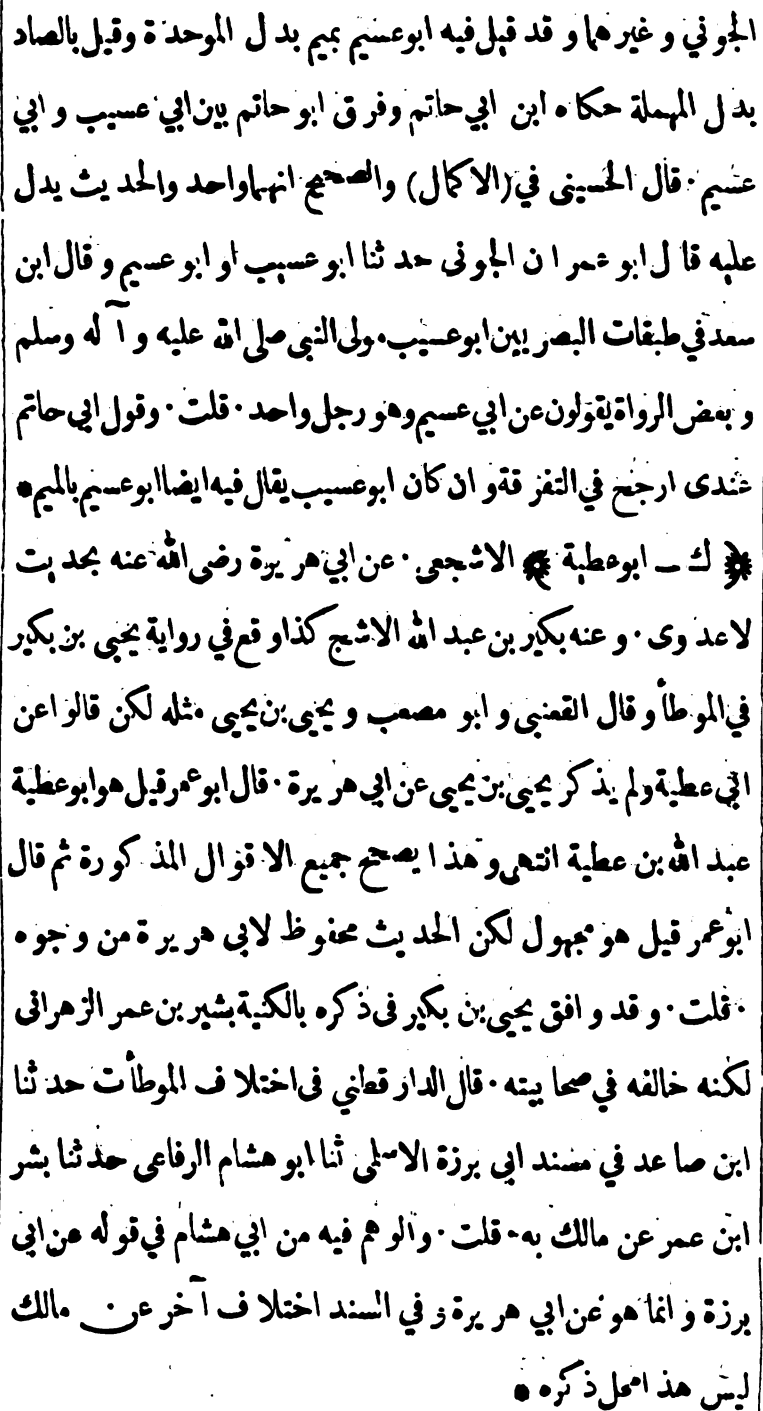 الجوني وغيرهما وقد قيل فيه ابوعسيم بميم بدل الموحدة وقيل بالصاد
بدل المهملة حكاه ابن ابي حاتم وفرق ابو حاتم بين ابي عسيب وابي
عسيم · قال الحسيني في (الاكمال) والصحيح انهما واحد والحديث يدل
عليه قال ابو عمران الجوني حدثنا ابو عسيب او ابو عسيم وقال ابن
سعد في طبقات البصريين ابوعسيب مولى النبي صلى الله عليه وآله وسلم
وبعض الرواة يقولون عن ابي عسيم وهو رجل واحد · قلت · وقول ابي حاتم
عندى ارجح في التفرقة وان كان ابوعسيب يقال فيه ايضا ابوعسيم بالميم *
﴿ ك ـ ابوعطية ﴾ الاشجعى · عن ابي هريرة رضى الله عنه بحديث
لا عدوى · وعنه بكير بن عبد الله الاشج كذا وقع في رواية يحيى بن بكير
في الموطأ وقال القعنبى وابو مصعب ويحيى بن يحيى مثله لكن قالوا عن
ابي عطية ولم يذكر يحيى بن يحيى عن ابي هريرة · قال ابو عمر قيل هو ابوعطية
عبد الله بن عطية انتهى وهذا يصحح جميع الاقوال المذكورة ثم قال
ابو عمر قيل هو مجهول لكن الحديث محفوظ لابى هريرة من وجوه
· قلت · وقد وافق يحيى بن بكير فى ذكره بالكنية بشير بن عمر الزهرانى
لكنه خالفه في صحابيته · قال الدارقطني فى اختلاف الموطأت حدثنا
ابن صاعد في مسند ابى برزة الاسلمى ثنا ابو هشام الرفاعى حدثنا بشر
ابن عمر عن مالك به · قلت · والوهم فيه من ابي هشام في قوله عن ابي
برزة وانما هو عن ابي هريرة وفي السند اختلاف آخر عن مالك
ليس هذا محل ذكره *